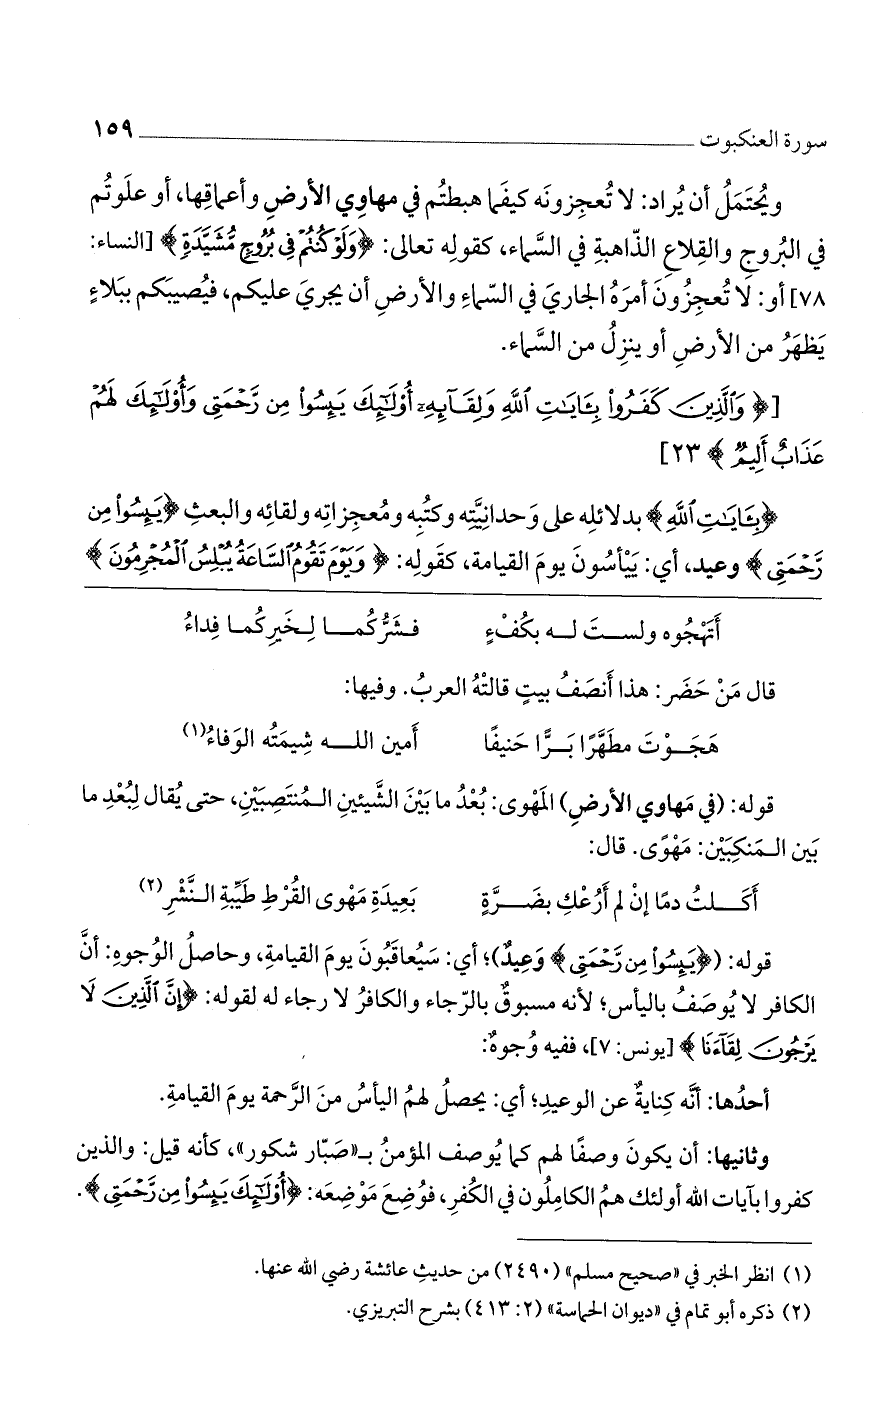 سورة العنكبوت ١٥٩
ويُحتَمَلُ أن يُراد: لا تُعجِزونَه كيفَما هبطتُم في مهاوِي الأرضِ وأعماقِها، أو علَوتُم
في البُروجِ والقِلاعِ الذّاهبةِ في السَّماء، كقولِه تعالى: ﴿وَلَوْ كُنتُمْ فِى بُرُوجٍ مُّشَيَّدَةٍ﴾ [النساء:
٧٨] أو: لا تُعجِزُونَ أمرَهُ الجاريَ في السّماءِ والأرضِ أن يجريَ عليكم، فيُصيبَكم ببَلاءٍ
يَظهَرُ من الأرضِ أو ينزِلُ من السَّماء.
[﴿وَٱلَّذِينَ كَفَرُوا۟ بِـَٔايَـٰتِ ٱللَّهِ وَلِقَآئِهِۦٓ أُو۟لَـٰٓئِكَ يَئِسُوا۟ مِن رَّحْمَتِى وَأُو۟لَـٰٓئِكَ لَهُمْ
عَذَابٌ أَلِيمٌ﴾ ٢٣]
﴿بِـَٔايَـٰتِ ٱللَّهِ﴾ بدلائلِه على وَحدانِيَّتِه وكتُبِه ومُعجِزاتِه ولقائِه والبعثِ ﴿يَئِسُوا۟ مِن
رَّحْمَتِى﴾ وعيد، أي: يَيْأسُونَ يومَ القيامة، كقَولِه: ﴿وَيَوْمَ تَقُومُ ٱلسَّاعَةُ يُبْلِسُ ٱلْمُجْرِمُونَ﴾
أَتَهْجُوه ولستَ له بكُفْءٍ فشَرُّكُما لِخَيرِكُما فِداءُ
قال مَنْ حَضَر: هذا أَنصَفُ بيتٍ قالتْهُ العربُ. وفيها:
هَجَوْتَ مطَهَّرًا بَرًّا حَنيفًا أَمين الله شِيمَتُه الوَفاءُ(١)
قوله: (في مَهاوي الأرضِ) المَهْوى: بُعْدُ ما بَيْنَ الشَّيئينِ المُنتَصِبَيْنِ، حتى يُقال لِبُعْدِ ما
بَين المَنكِبَيْن: مَهْوًى. قال:
أَكَلتُ دمًا إنْ لم أَرُعْكِ بضَرَّةٍ بَعِيدَةِ مَهْوى القُرْطِ طَيِّبةِ النَّشْرِ(٢)
قوله: (﴿يَئِسُوا۟ مِن رَّحْمَتِى﴾ وَعِيدٌ)؛ أي: سَيُعاقَبُونَ يومَ القيامةِ، وحاصلُ الوُجوهِ: أنَّ
الكافر لا يُوصَفُ باليأس؛ لأنه مسبوقٌ بالرّجاء والكافرُ لا رجاء له لقوله: ﴿إِنَّ ٱلَّذِينَ لَا
يَرْجُونَ لِقَآءَنَا﴾ [يونس: ٧]، ففيه وُجوهٌ:
أحدُها: أنَّه كِنايةٌ عن الوعيدِ؛ أي: يحصلُ لهمُ اليأسُ منَ الرَّحمة يومَ القيامةِ.
وثانيها: أن يكونَ وصفًا لهم كما يُوصف المؤمنُ بـ«صَبّار شكور»، كأنه قيل: والذين
كفروا بآيات الله أولئك همُ الكامِلُون في الكُفرِ، فوُضِعَ مَوْضِعَه: ﴿أُو۟لَـٰٓئِكَ يَئِسُوا۟ مِن رَّحْمَتِى﴾.
(١) انظر الخبر في «صحيح مسلم» (٢٤٩٠) من حديثِ عائشة رضي الله عنها.
(٢) ذكره أبو تمام في «ديوان الحماسة» (٢: ٤١٣) بشرح التبريزي.